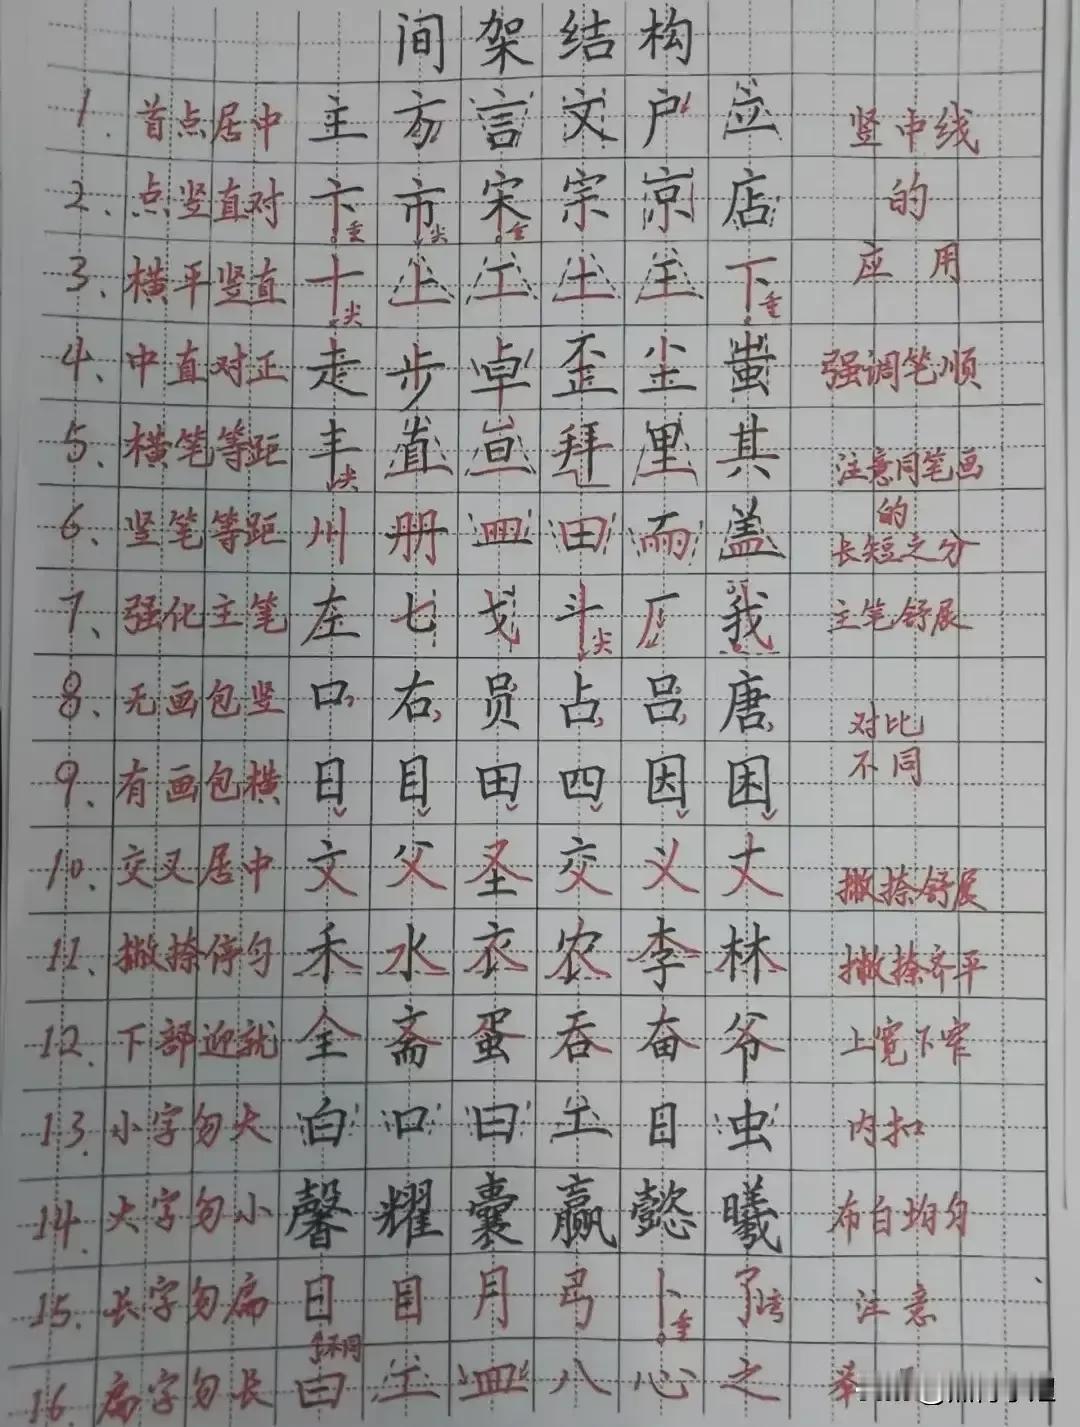 间架结构
1. 首点居中 主方言文户应 竖中线
2. 点竖直对 卞市宋宗京店 的
重 尖 重
3. 横平竖直 十上工土王下 应用
尖 重
4. 中直对正 走步卓歪尘蚩 强调笔顺
5. 横笔等距 丰直亘拜里其 注意同笔画
尖 的
6. 竖笔等距 川册皿田雨盖 长短之分
7. 强化主笔 左七戈斗厂我 主笔舒展
尖
8. 无画包竖 口右员占吕唐 对比
9. 有画包横 日目田四因困 不同
10. 交叉居中 文父圣交义丈 撇捺舒展
11. 撇捺停匀 禾水衣农李林 撇捺齐平
12. 下部迎就 全斋蛋吞奋爷 上宽下窄
13. 小字勿大 白口曰工日虫 内扣
14. 大字勿小 馨耀囊赢懿曦 布白均匀
15. 长字勿扁 日目月弓卜了 注意
重 弯
不同
16. 扁字勿长 曰工皿八心之